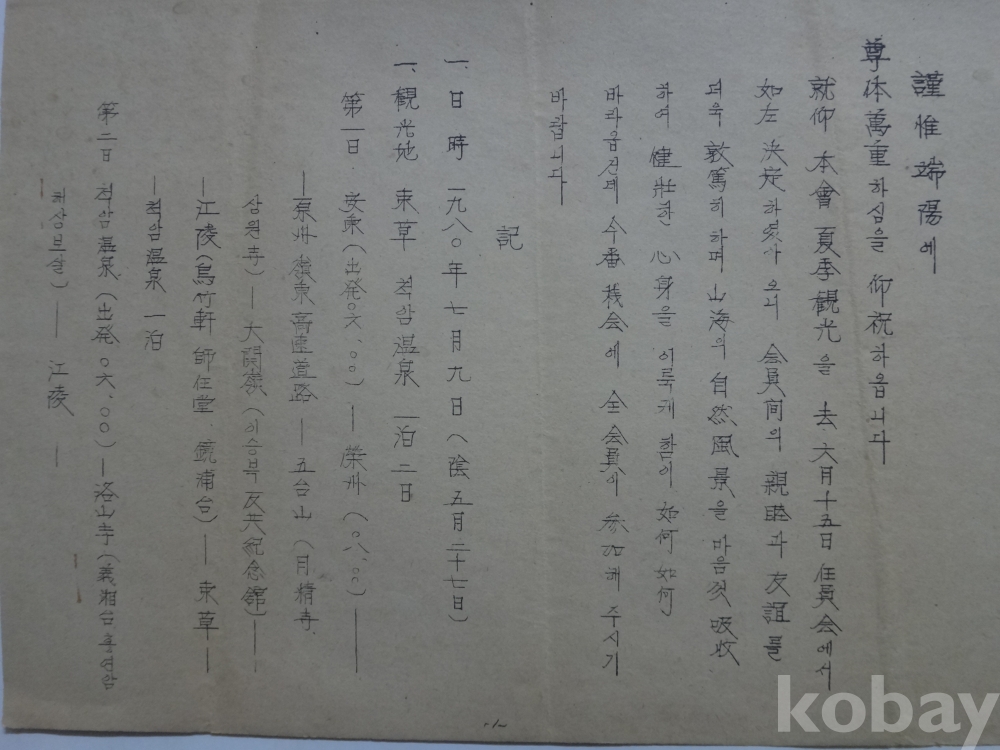 謹惟 端陽에
尊体萬重하심을 仰祝하옵니다
就仰 本會 夏季観光을 去 六月十五日 任員会에서
如左 決定하였사오니 会員间의 親睦과 友誼를
더욱 敦篤히하며 山海의 自然風景을 마음껏 吸收
하여 健壯한 心身을 이룩케 참이 如何 如何
바라옵건데 今番 栈会에 全会員이 参加해 주시기
바랍니다
記
一、日時 一九八〇年七月九日(陰五月二十七日)
一、観光地 束草 척암温泉 一泊二日
第一日 安東(出発〇六、〇〇)— 榮州(〇八、〇〇)—
—原州 嶺東高速道路 — 五台山(月精寺
상원寺)— 大関嶺(이승복反共紀念舘)—
—江陵(烏竹軒 師任堂 鏡浦台)— 束草—
—척암温泉 一泊
第二日 척암温泉(出発〇六、〇〇)— 洛山寺(義湘台 홍연암
해상보살)— 江陵 —
kobay